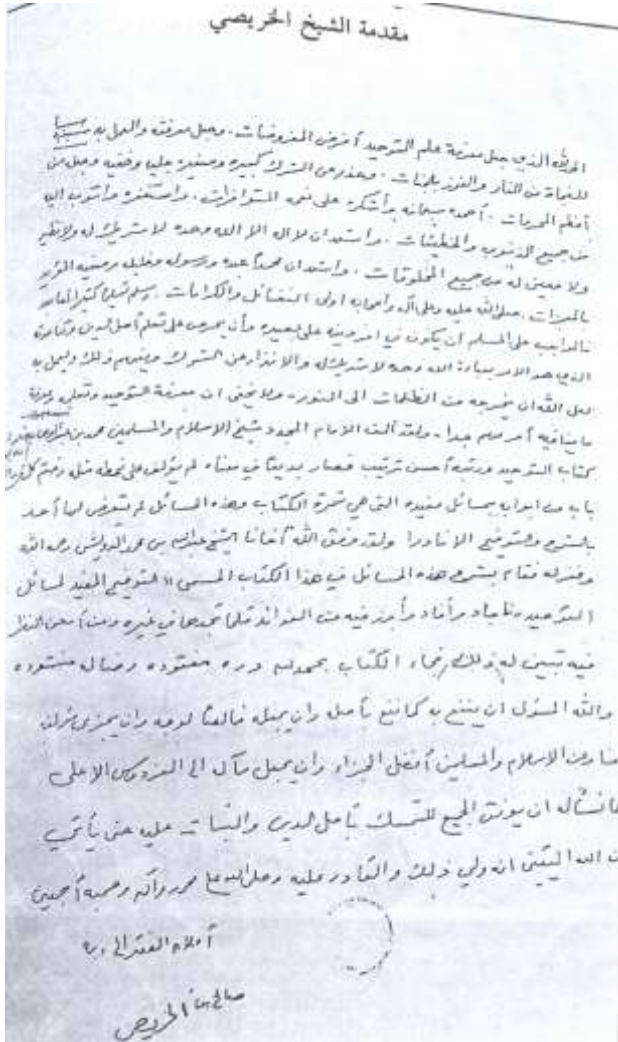 مقدمة الشيخ الخريصي
الحمد لله الذي جعل معرفة علم التوحيد أفرض المفروضات. وجعل معرفته والعمل به سببا
للنجاة من النار والفوز بالجنات. وحذر من الشرك كبيره وصغيره جليه وخفيه وجعله من
أعظم المحرمات. أحمده سبحانه وأشكره على نعمه المتوافرات. واستغفره واتوب اليه
من جميع الذنوب والخطيئات. واشهد ان لا اله الا الله وحده لا شريك له ولا نظير
ولا معين له من جميع المخلوقات. واشهد ان محمدا عبده ورسوله وخليله وصفيه المؤيد
بالمعجزات. صلى الله عليه وعلى آله واصحابه اولى الفضائل والكرامات. وسلم تسليما كثيرا اما بعد
فالواجب على المسلم أن يكون في امر دينه على بصيره وأن يحرص على تعلم أصل الدين وقاعدته
الذي هو الامر بعبادة الله وحده لا شريك له والانذار عن الشرك ويتفهم ذلك ويعمل به
لعل الله ان يخرجه من الظلمات الى النور. ولا يخفى ان معرفة التوحيد وتعلمه ومعرفة
ما ينافيه أمر مهم جدا. ولقد ألف الامام المجدد شيخ الاسلام والمسلمين محمد بن عبدالوهاب
كتاب التوحيد ورتبه أحسن ترتيب فصار بديعا في معناه لم يؤلف على نمطه مثله وختم كل
باب من ابوابه بمسائل مفيده التي هي ثمرة الكتاب وهذه المسائل لم يتعرض لها أحد
بالشرح والتوضيح الا نادرا ولقد وفق الله أخانا الشيخ عبدالله بن محمد الدويش رحمه الله
وغفر له فقام بشرح هذه المسائل في هذا الكتاب المسمى «التوضيح المفيد لمسائل
التوحيد وأجاد وأفاد وأبرز فيه من الفوائد قلما تجدها في غيره ومن أمعن النظر
فيه تبين له ذلك فجاء الكتاب بحمد الله دره مفقوده وضاله منشوده
والله المسؤل ان ينفع به كما نفع بأصله وان يجعله خالصا لوجهه وان يجزي مؤلفه
عنا وعن الاسلام والمسلمين أفضل الجزاء وان يجعل مآله الى الفردوس الاعلى
كما نسأله ان يوفق الجميع للتمسك بأصل الدين والثبات عليه حتى يأتي
من الله اليقين انه ولي ذلك والقادر عليه وصلى الله على محمد وآله وصحبه أجمعين
أملاه الفقير الى
صالح الخريصي